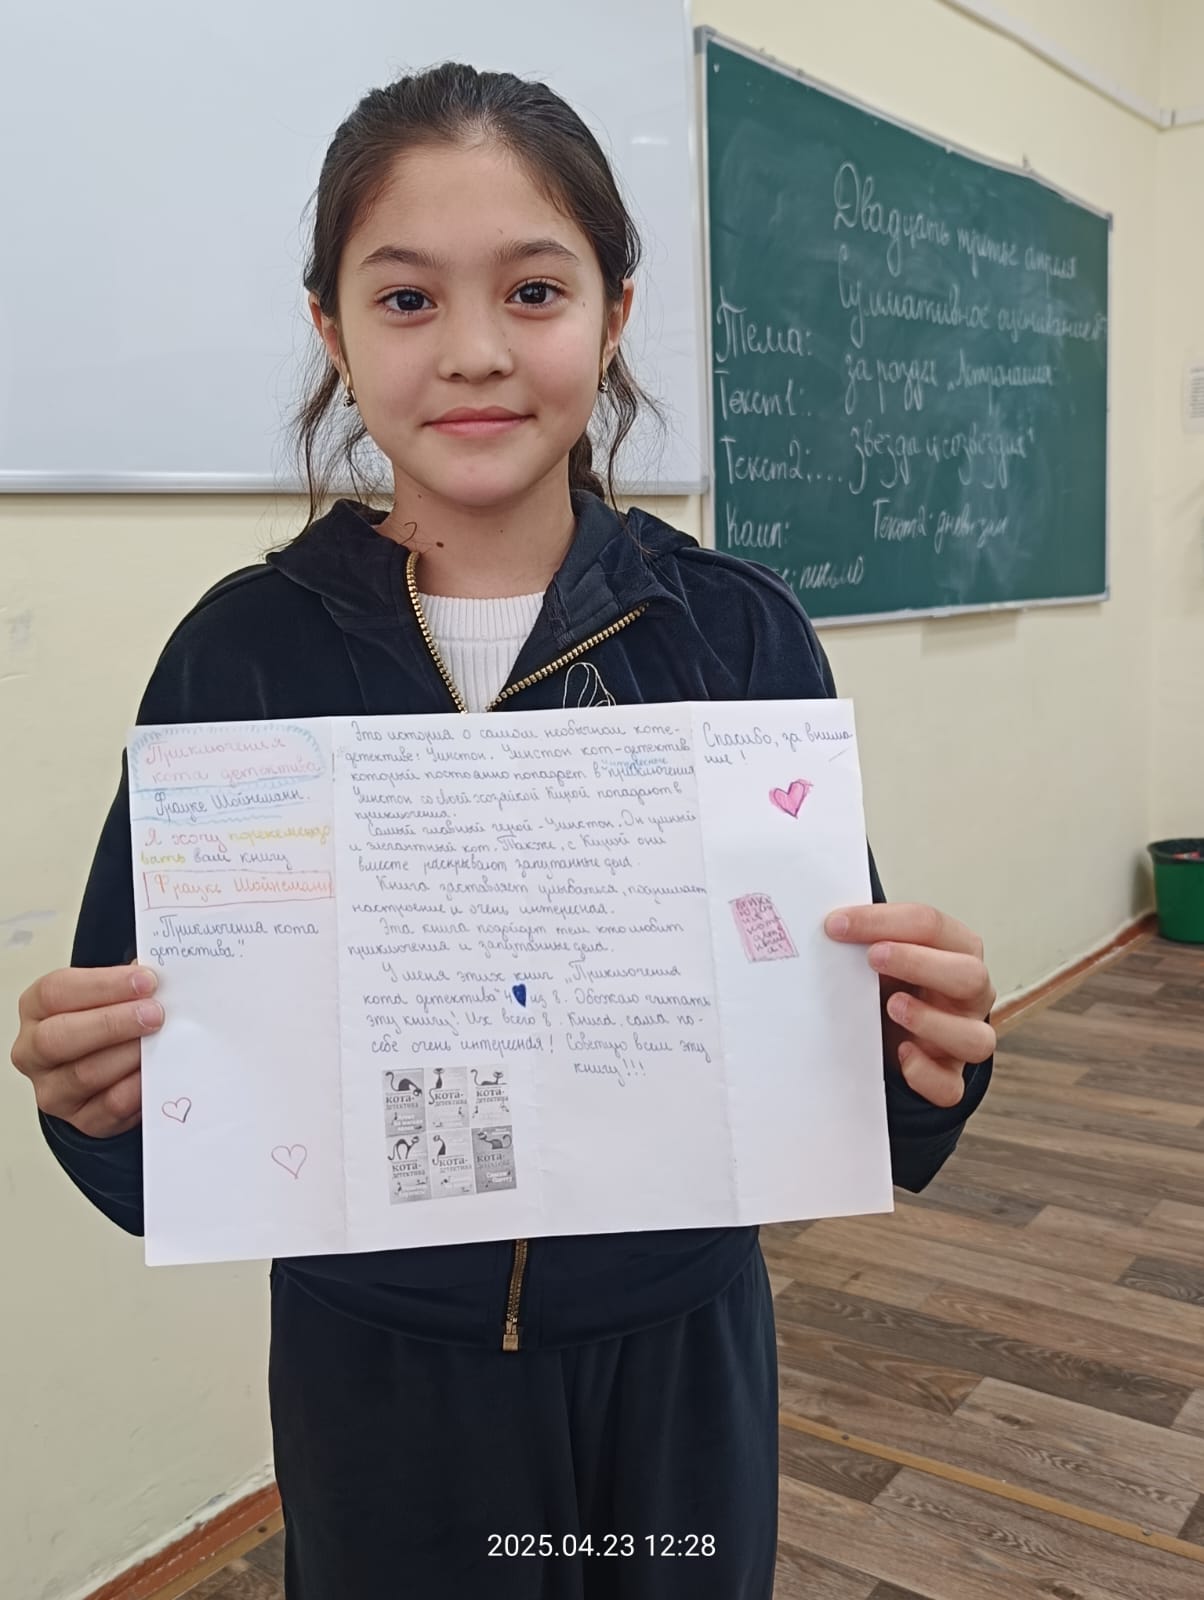 Двадцать третье апреля
Суммативное оценивание
за раздел „Астрономия
Звезда и созвездия“
Тема:
Текст1:
Текст2:...
Текст2:
Приключения
кота детектива
Фрауке Шойнеманн.
Я хочу порекомендо
вать вам книгу
Фрауке Шойнеманн
„Приключения кота
детектива".
Это история о самом необычном коте-
детективе: Уинстон. Уинстон кот-детектив
интересные
который постоянно попадает в приключения
Уинстон со своей хозяйкой Кирой попадают в
приключения.
Самый главный герой - Уинстон. Он умный
и элегантный кот. Также, с Кирой они
вместе раскрывают запутанные дела.
Книга заставляет улыбаться, поднимает
настроение и очень интересная.
Эта книга подойдет тем кто любит
приключения и запутанные дела.
У меня этих книг „Приключения
кота детектива" 4 из 8. Обожаю читать
эту книгу! Их всего 8. Книга сама по-
себе очень интересная! Советую всем эту
книгу!!!
кота-
детектива
кота-
детектива
кота-
детектива
кота-
детектива
кота-
детектива
кота-
детектива
Спасибо, за внима-
ние!
2025.04.23 12:28